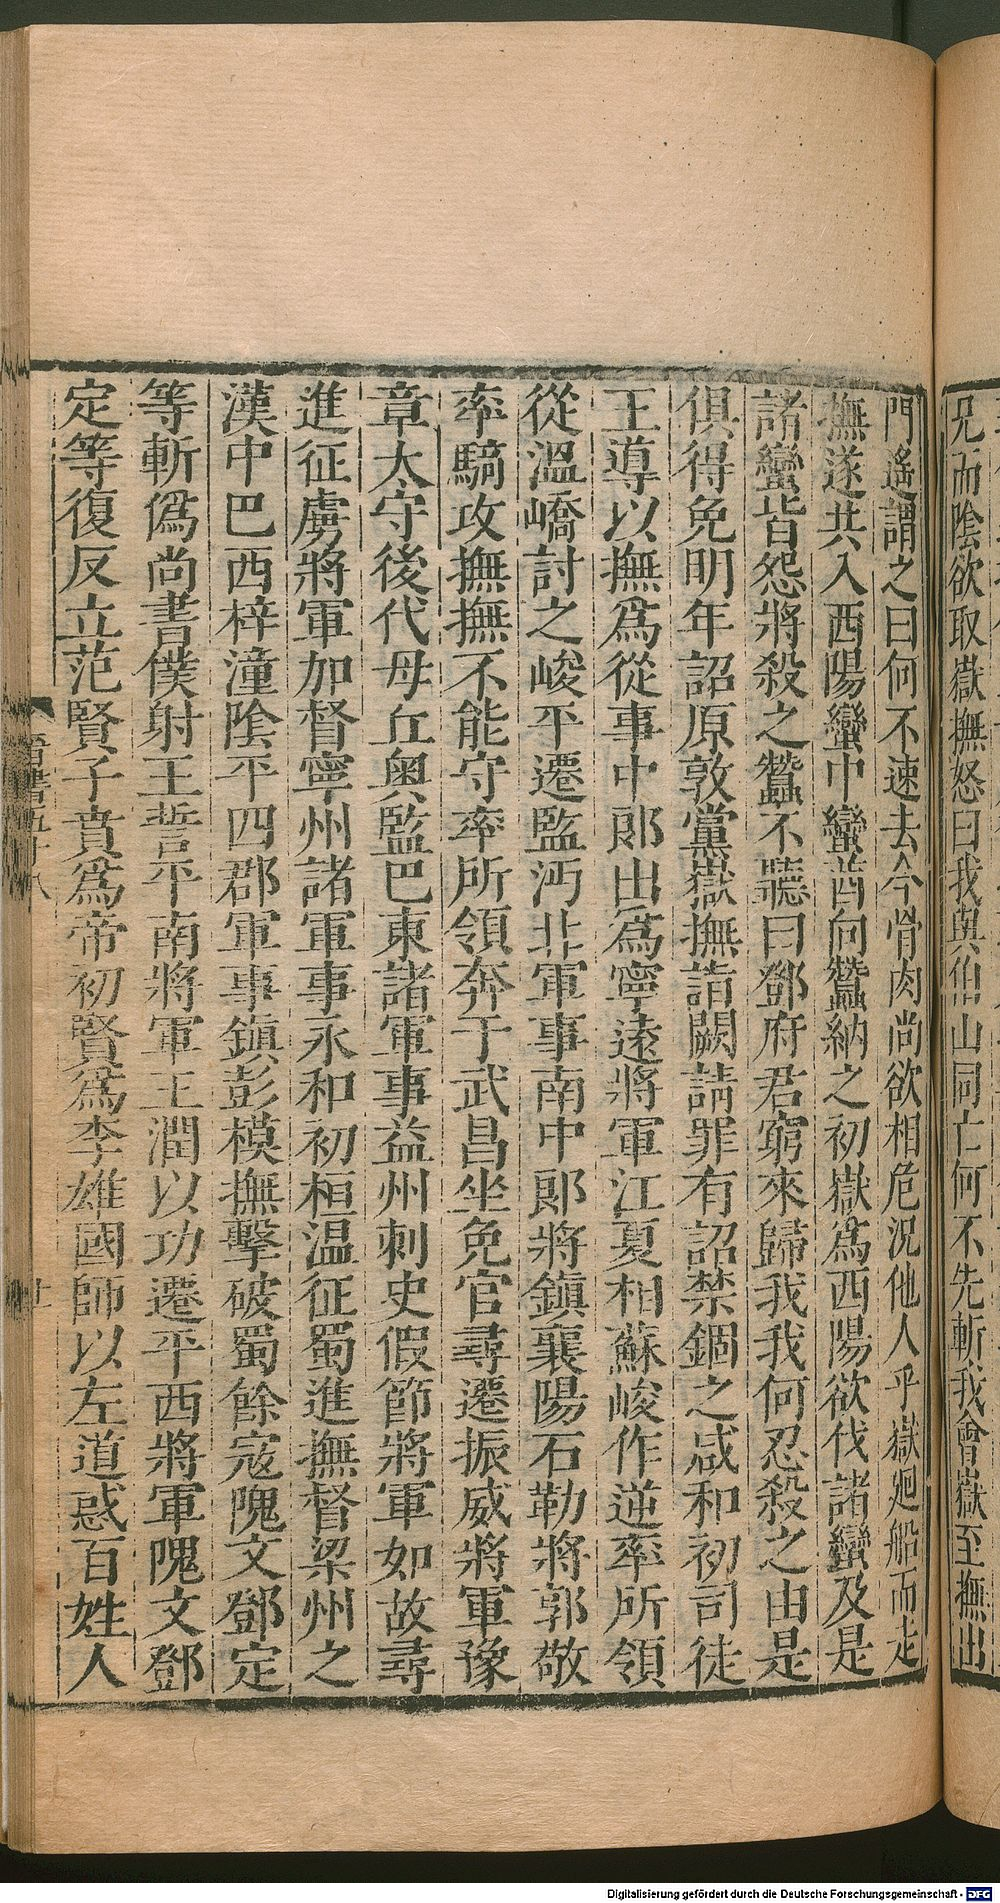 兄而陰欲取嶽撫怒曰我與伯山同亡何不先斬我會嶽至撫出
門遙謂之曰何不速去今骨肉尚欲相危況他人乎嶽廻船而走
撫遂共入西陽蠻中蠻酋向蠶納之初嶽爲西陽欲伐諸蠻及是
諸蠻皆怨將殺之蠶不聽曰鄧府君窮來歸我我何忍殺之由是
俱得免明年詔原敦黨嶽撫詣闕請罪有詔禁錮之咸和初司徒
王導以撫爲從事中郎出爲寧遠將軍江夏相蘇峻作逆率所領
從溫嶠討之峻平遷監沔北軍事南中郎將鎮襄陽石勒將郭敬
率騎攻撫撫不能守率所領奔于武昌坐免官尋遷振威將軍豫
章太守後代母丘奧監巴東諸軍事益州刺史假節將軍如故尋
進征虜將軍加督寧州諸軍事永和初桓温征蜀進撫督梁州之
漢中巴西梓潼陰平四郡軍事鎮彭模撫擊破蜀餘寇隗文鄧定
等斬僞尚書僕射王誓平南將軍王潤以功遷平西將軍隗文鄧
定等復反立范賢子賁爲帝初賢爲李雄國師以左道惑百姓人
晉書五十八
廿
Digitalisierung gefördert durch die Deutsche Forschungsgemeinschaft - DFG